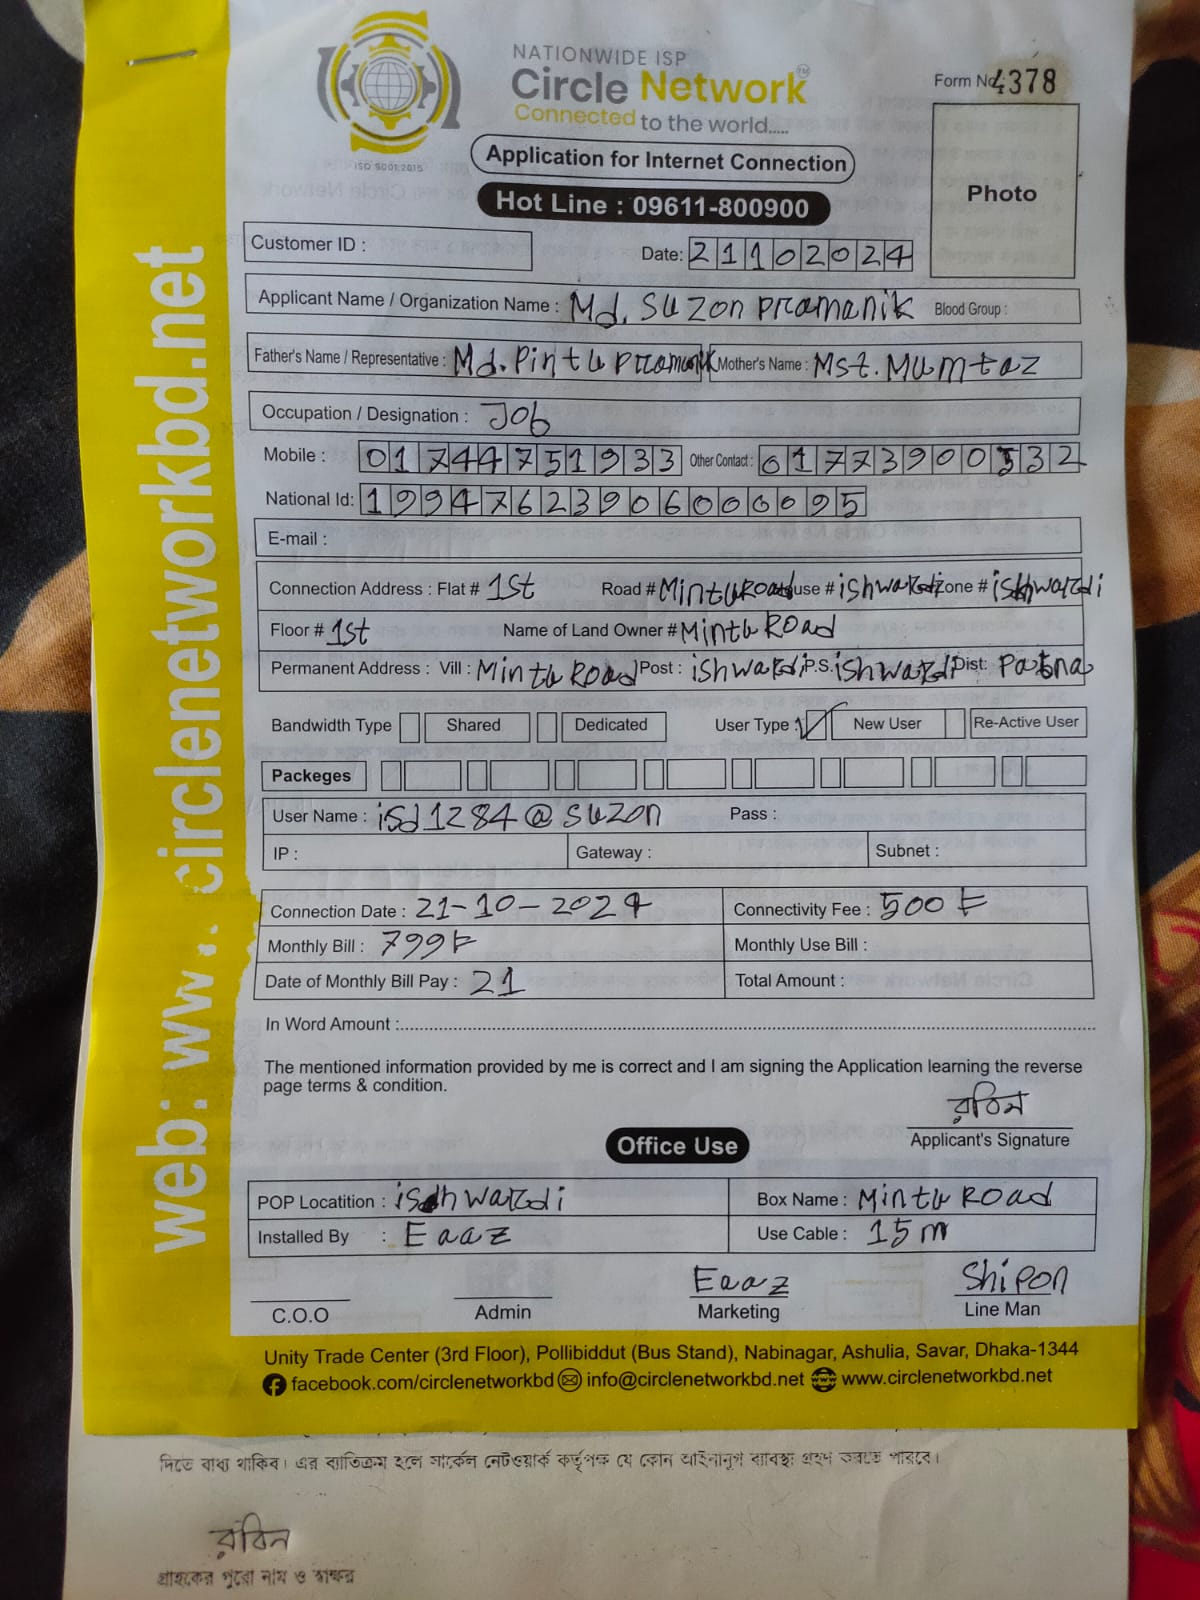 NATIONWIDE ISP
Circle Network
Connected to the world.....
ISO 9001:2015
Form No 4378
Application for Internet Connection
Photo
Hot Line : 09611-800900
Customer ID :
Date: 21102024
Applicant Name / Organization Name : Md. Suzon Pramanik Blood Group :
Father's Name / Representative : Md. Pintu Pramanik Mother's Name : Mst. Mumtaz
Occupation / Designation : Job
Mobile : 01744751933 Other Contact : 01773900532
National Id: 19947623906000095
E-mail :
Connection Address : Flat # 1st Road # Mintu Road House # ishwardi Zone # ishwardi
Floor # 1st Name of Land Owner # Mintu Road
Permanent Address : Vill : Mintu Road Post : ishwardi P.S. ishwardi Dist: Pabna
Bandwidth Type Shared Dedicated User Type : New User Re-Active User
Packeges
User Name : isd1284@suzon Pass :
IP : Gateway : Subnet :
Connection Date : 21-10-2024 Connectivity Fee : 500 ৳
Monthly Bill : 799 ৳ Monthly Use Bill :
Date of Monthly Bill Pay : 21 Total Amount :
In Word Amount :
The mentioned information provided by me is correct and I am signing the Application learning the reverse
page terms & condition.
রবিন
Applicant's Signature
Office Use
POP Locatition : ishwardi Box Name : Mintu Road
Installed By : Eaaz Use Cable : 15 m
Eaaz Shipon
C.O.O Admin Marketing Line Man
Unity Trade Center (3rd Floor), Pollibiddut (Bus Stand), Nabinagar, Ashulia, Savar, Dhaka-1344
facebook.com/circlenetworkbd info@circlenetworkbd.net www.circlenetworkbd.net
web: www.circlenetworkbd.net
দিতে বাধ্য থাকিব। এর ব্যতিক্রম হলে সার্কেল নেটওয়ার্ক কর্তৃপক্ষ যে কোন আইনানুগ ব্যাবস্থা গ্রহণ করতে পারবে।
রবিন
গ্রাহকের পুরো নাম ও স্বাক্ষর